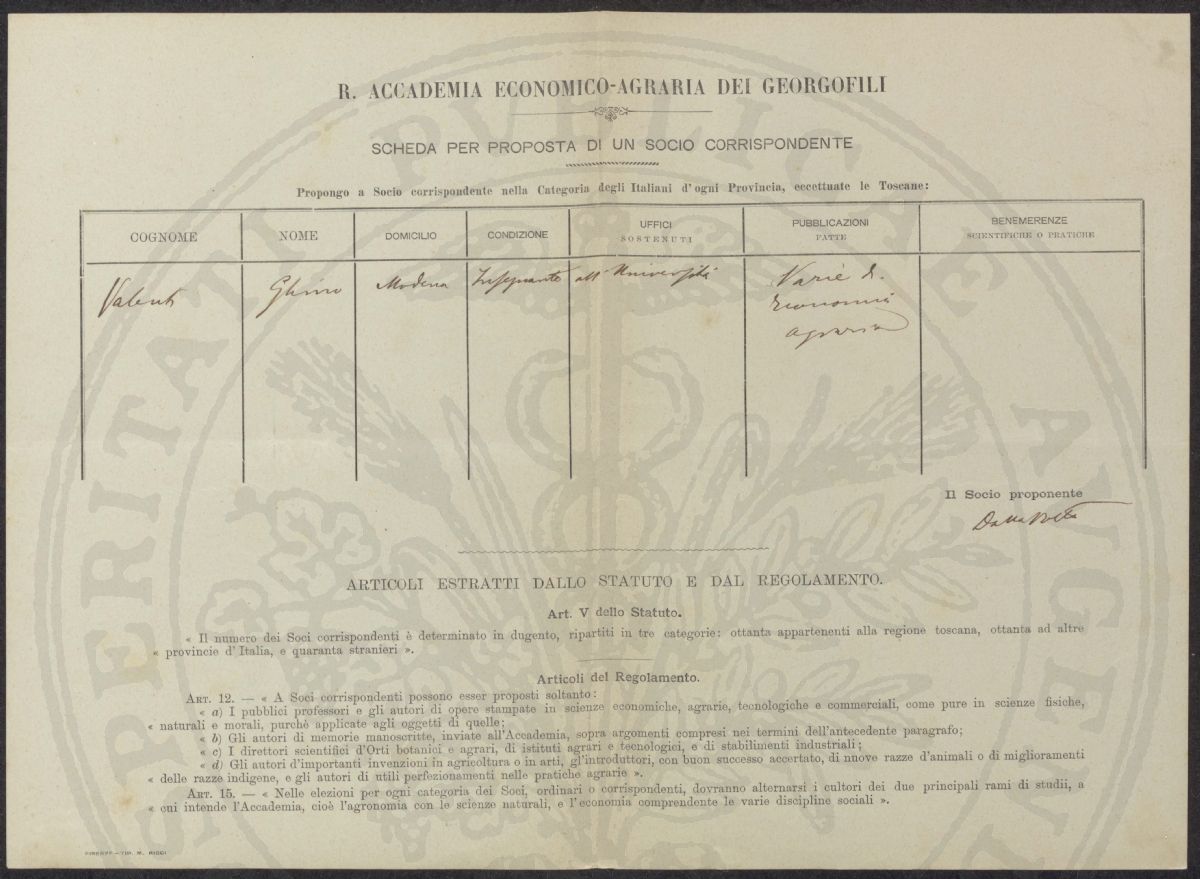 R. ACCADEMIA ECONOMICO-AGRARIA DEI GEORGOFILI
SCHEDA PER PROPOSTA DI UN SOCIO CORRISPONDENTE
Propongo a Socio corrispondente nella Categoria degli Italiani d'ogni Provincia, eccettuate le Toscane:
COGNOME
NOME
DOMICILIO
CONDIZIONE
UFFICI
SOSTENUTI
PUBBLICAZIONI
FATTE
BENEMERENZE
SCIENTIFICHE O PRATICHE
Valenti
Ghino
Modena
Insegnante all' Università
Varie di
Economia
agraria
Il Socio proponente
Dalla Volta
ARTICOLI ESTRATTI DALLO STATUTO E DAL REGOLAMENTO.
Art. V dello Statuto.
« Il numero dei Soci corrispondenti è determinato in dugento, ripartiti in tre categorie: ottanta appartenenti alla regione toscana, ottanta ad altre
« provincie d'Italia, e quaranta stranieri ».
Articoli del Regolamento.
ART. 12. — « A Soci corrispondenti possono esser proposti soltanto:
« a) I pubblici professori e gli autori di opere stampate in scienze economiche, agrarie, tecnologiche e commerciali, come pure in scienze fisiche,
« naturali e morali, purchè applicate agli oggetti di quelle;
« b) Gli autori di memorie manoscritte, inviate all'Accademia, sopra argomenti compresi nei termini dell'antecedente paragrafo;
« c) I direttori scientifici d'Orti botanici e agrari, di istituti agrari e tecnologici, e di stabilimenti industriali;
« d) Gli autori d'importanti invenzioni in agricoltura o in arti, gl'introduttori, con buon successo accertato, di nuove razze d'animali o di miglioramenti
« delle razze indigene, e gli autori di utili perfezionamenti nelle pratiche agrarie ».
ART. 15. — « Nelle elezioni per ogni categoria dei Soci, ordinari o corrispondenti, dovranno alternarsi i cultori dei due principali rami di studii, a
« cui intende l'Accademia, cioè l'agronomia con le scienze naturali, e l'economia comprendente le varie discipline sociali ».
FIRENZE — TIP. M. RICCI